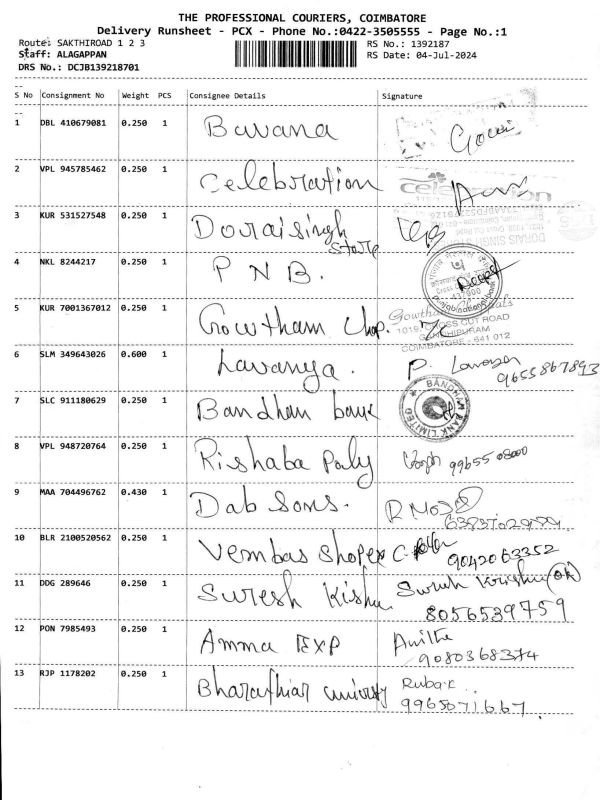 THE PROFESSIONAL COURIERS, COIMBATORE
Delivery Runsheet - PCX - Phone No.:0422-3505555 - Page No.:1
Route: SAKTHIROAD 1 2 3 RS No.: 1392187
Staff: ALAGAPPAN RS Date: 04-Jul-2024
DRS No.: DCJB139218701
S No Consignment No Weight PCS Consignee Details Signature
1 DBL 410679081 0.250 1 Buvana
2 VPL 945785462 0.250 1 Celebration
3 KUR 531527548 0.250 1 Doraisingh
Store
4 NKL 8244217 0.250 1 PNB. Deepa
punjab national bank
5 KUR 7001367012 0.250 1 Gowtham Chop.
CROSS CUT ROAD
COIMBATORE - 641 012
6 SLM 349643026 0.600 1 Lavanya. P. Lavanya
9655867893
7 SLC 911180629 0.250 1 Bandhan bank
BANDHAN BANK LIMITED
8 VPL 948720764 0.250 1 Rishaba Poly 9965508000
9 MAA 704496762 0.430 1 Dab Sons.
10 BLR 2100520562 0.250 1 Vembas Shopex 9042063352
11 DDG 289646 0.250 1 Suresh Kishu Suresh Krishna
8056539759
12 PON 7985493 0.250 1 Amma EXP Anitha
9080368374
13 RJP 1178202 0.250 1 Bharathiar University Ruba.K
9965071667